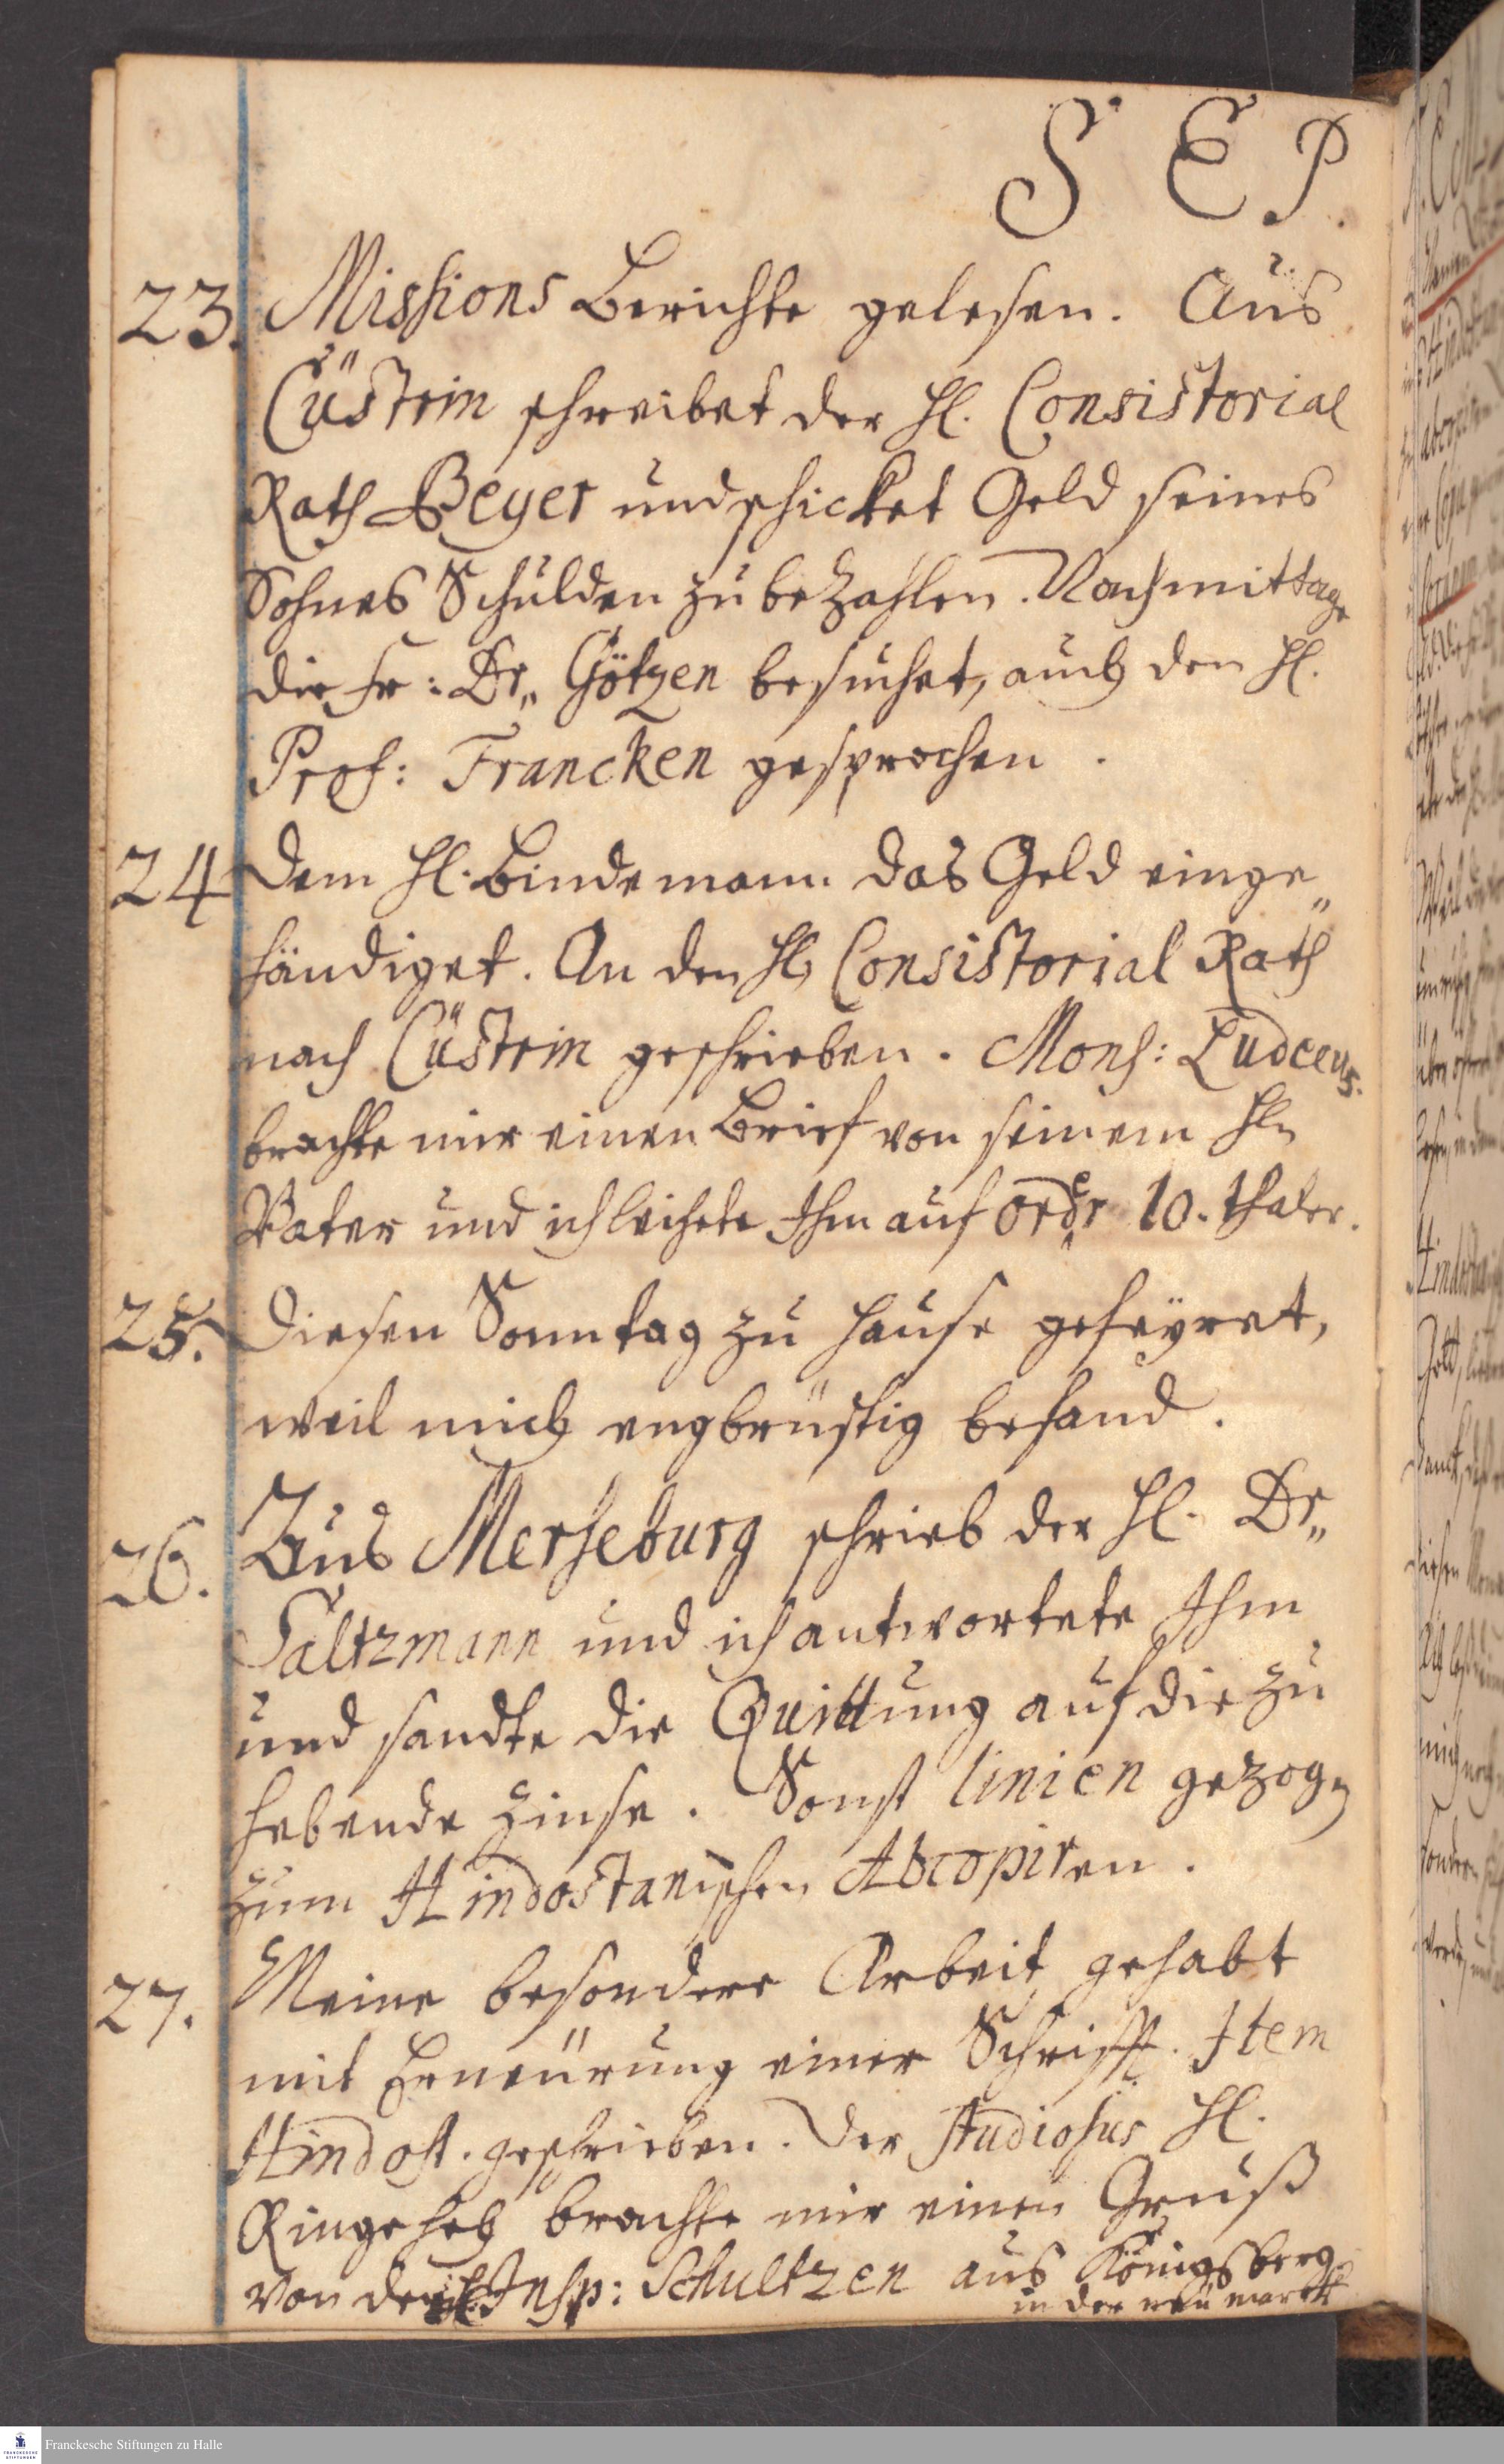 S E P.
23. Missions Berichte gelesen. Aus
Cüstrin schreibet der Hl. Consistorial
Rath Beyer und schicket Geld seines
Sohnes Schulden zu bezahlen. Nachmittage
die Fr: Dr„ Götzen besuchet, auch den Hl.
Prof: Francken gesprochen.
24 Dem Hl. Bindemann das Geld einge„
händiget. An den Hl. Consistorial Rath
nach Cüstrin geschrieben. Mons: Ludceus.
brachte mir einen Brief von seinem Hln
Vater und ich leihete Ihm auf order 10. thaler.
25. Diesen Sonntag zu Hause gefeyret,
weil mich engbrüstig befand.
26. Aus Merseburg schrieb der Hl. Dr„
Saltzmann und ich antwortete Ihm
und sandte die Quittung auf die zu
hebende Zinse. Sonst linien gezogen
zum Hindostanischen Abcopiren.
27. Meine besondere Arbeit gehabt
mit Erneürung einer Schrifft. Item
Hindost. geschrieben. Der Studiosus Hl.
brachte mir einen Gruß
von dem Insp: Schultzen aus Königsberg
in der neu marck
Franckesche Stiftungen zu Halle